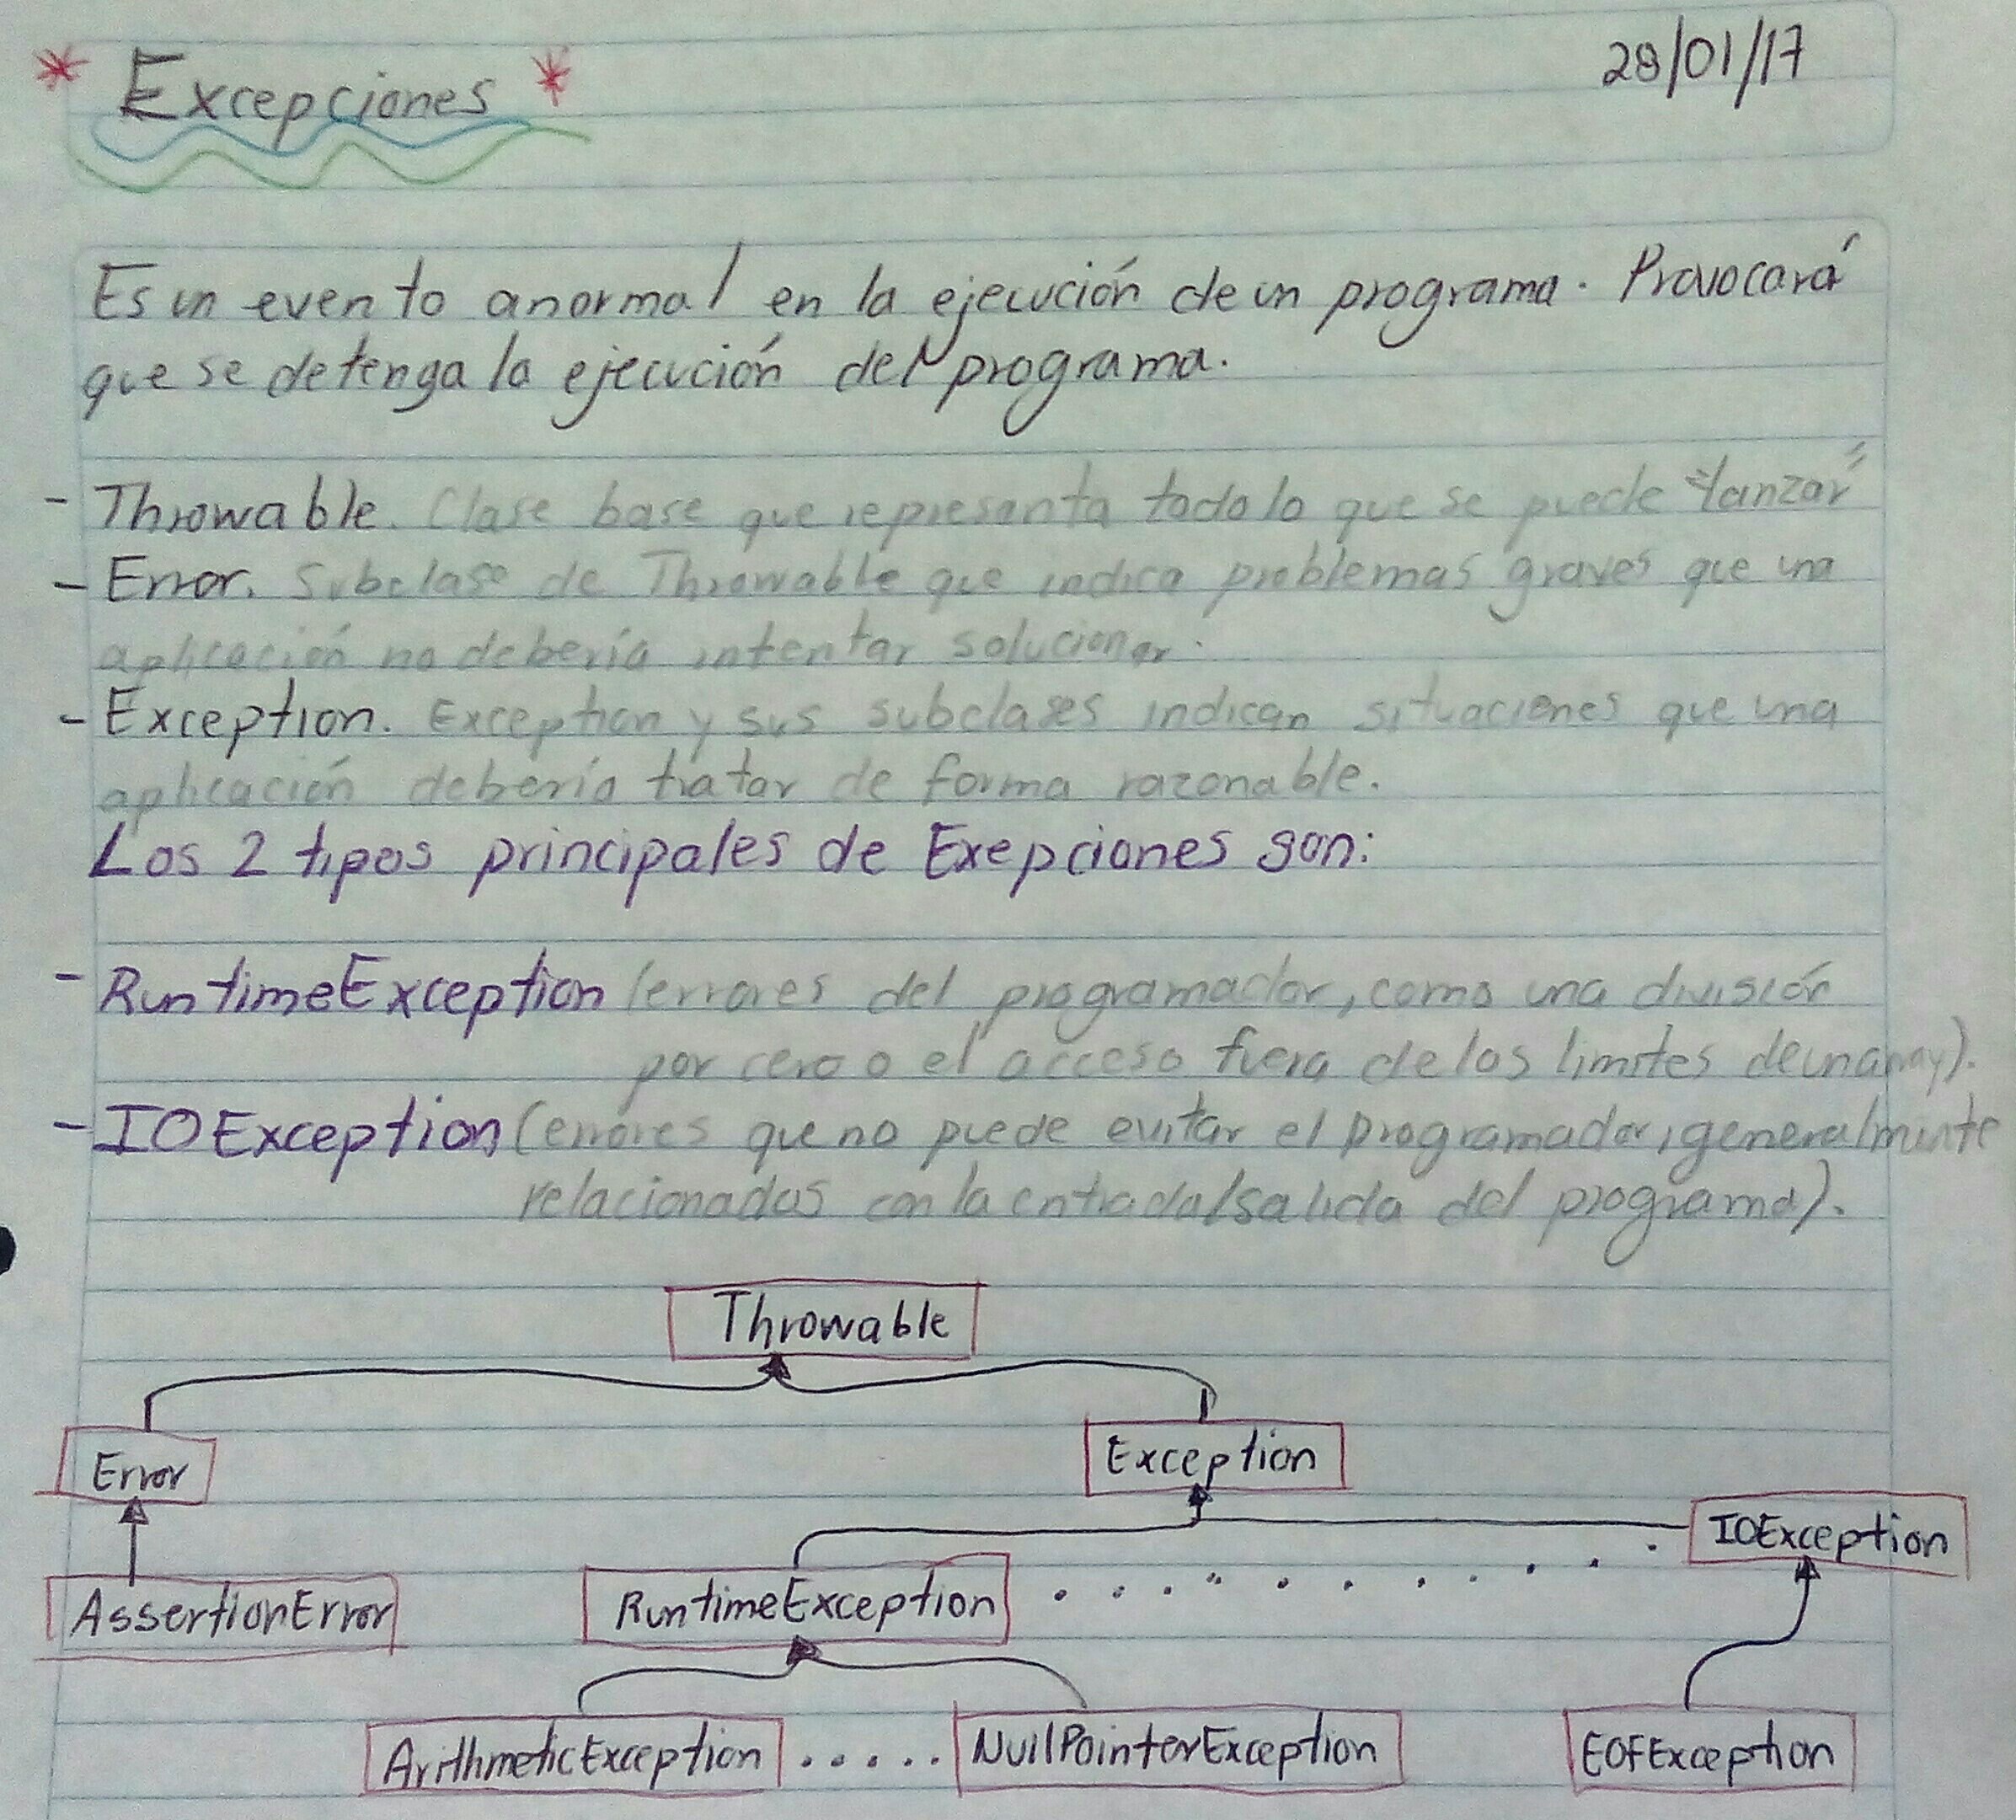 * Excepciones *
28/01/17
Es un evento anormal en la ejecución de un programa. Provocará
que se detenga la ejecución del programa.
- Throwable. Clase base que representa todo lo que se puede "lanzar"
- Error. Subclase de Throwable que indica problemas graves que una
aplicación no debería intentar solucionar.
- Exception. Exception y sus subclases indican situaciones que una
aplicación debería tratar de forma razonable.
Los 2 tipos principales de Exepciones son:
- RuntimeException (errores del programador, como una división
por cero o el acceso fuera de los limites de un array).
- IOException (errores que no puede evitar el programador, generalmente
relacionados con la entrada/salida del programa).
Throwable
Error
Exception
IOException
AssertionError
RuntimeException . . . . . . . . . .
ArithmeticException ..... NullPointerException
EOFException